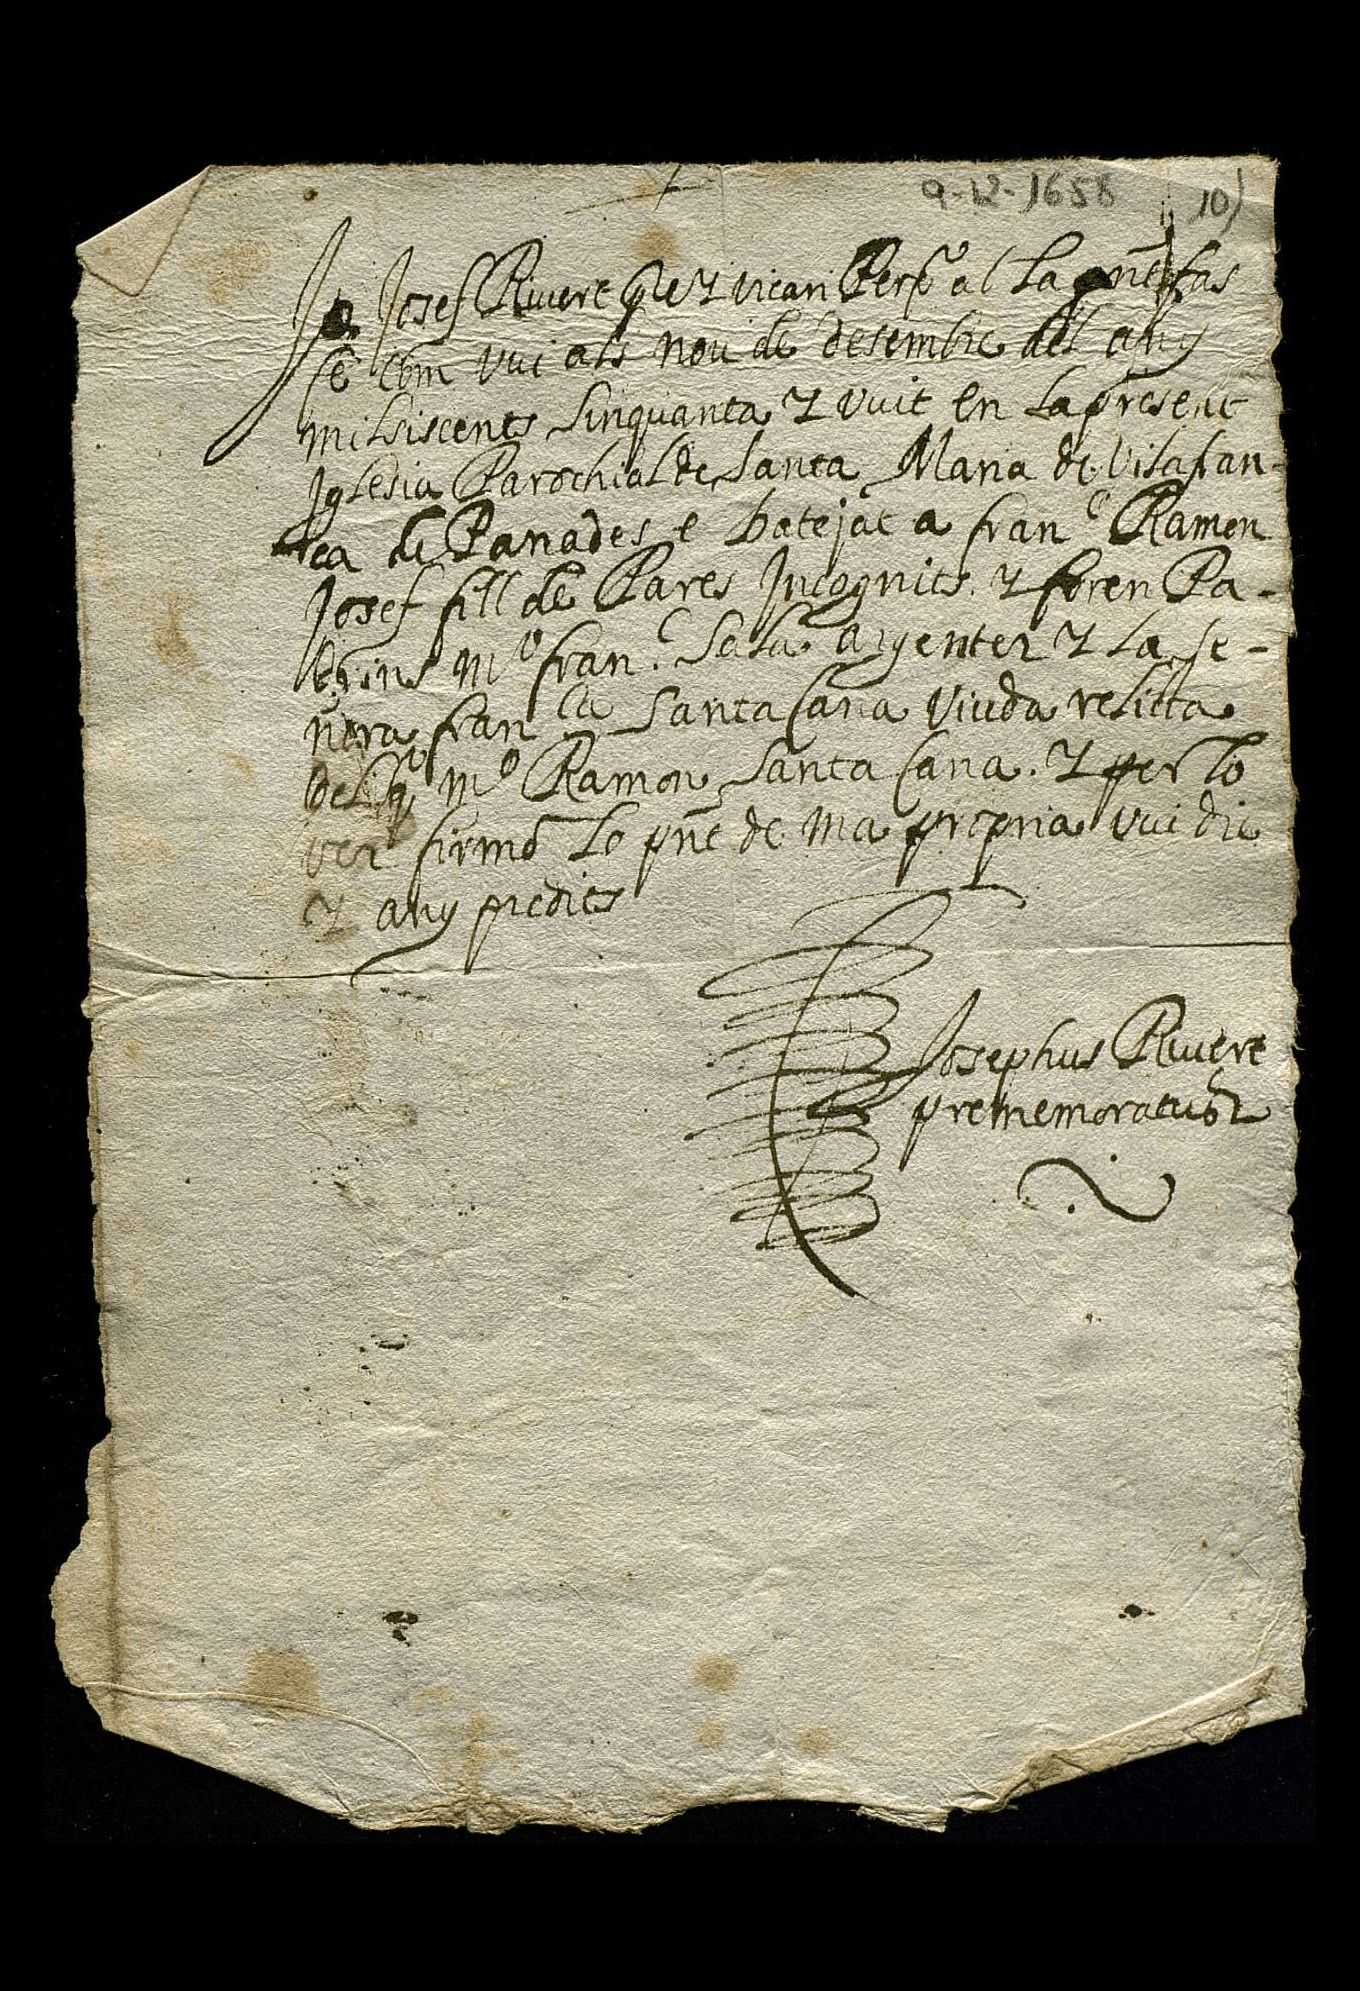 9-12-1658 10)
Jo Josef Riuere pre y vicari Perpo ab la pnt fas
fe com vui als nou de desembre del any
milsiscents sinquanta y vuit en la present
Iglesia Parochial de Santa Maria de Vilafran-
ca de Panades e batejat a franco Ramon
Josef fill de Pares Incognits. y foren Pa-
drins mo franc. Sala argenter y la se-
nora franca Santa Cana Viuda relicta
del qo mo Ramon Santa Cana. y per lo
ver firmo lo pnt de ma propria vui die
y any predits
Josephus Riuere
prememoratus